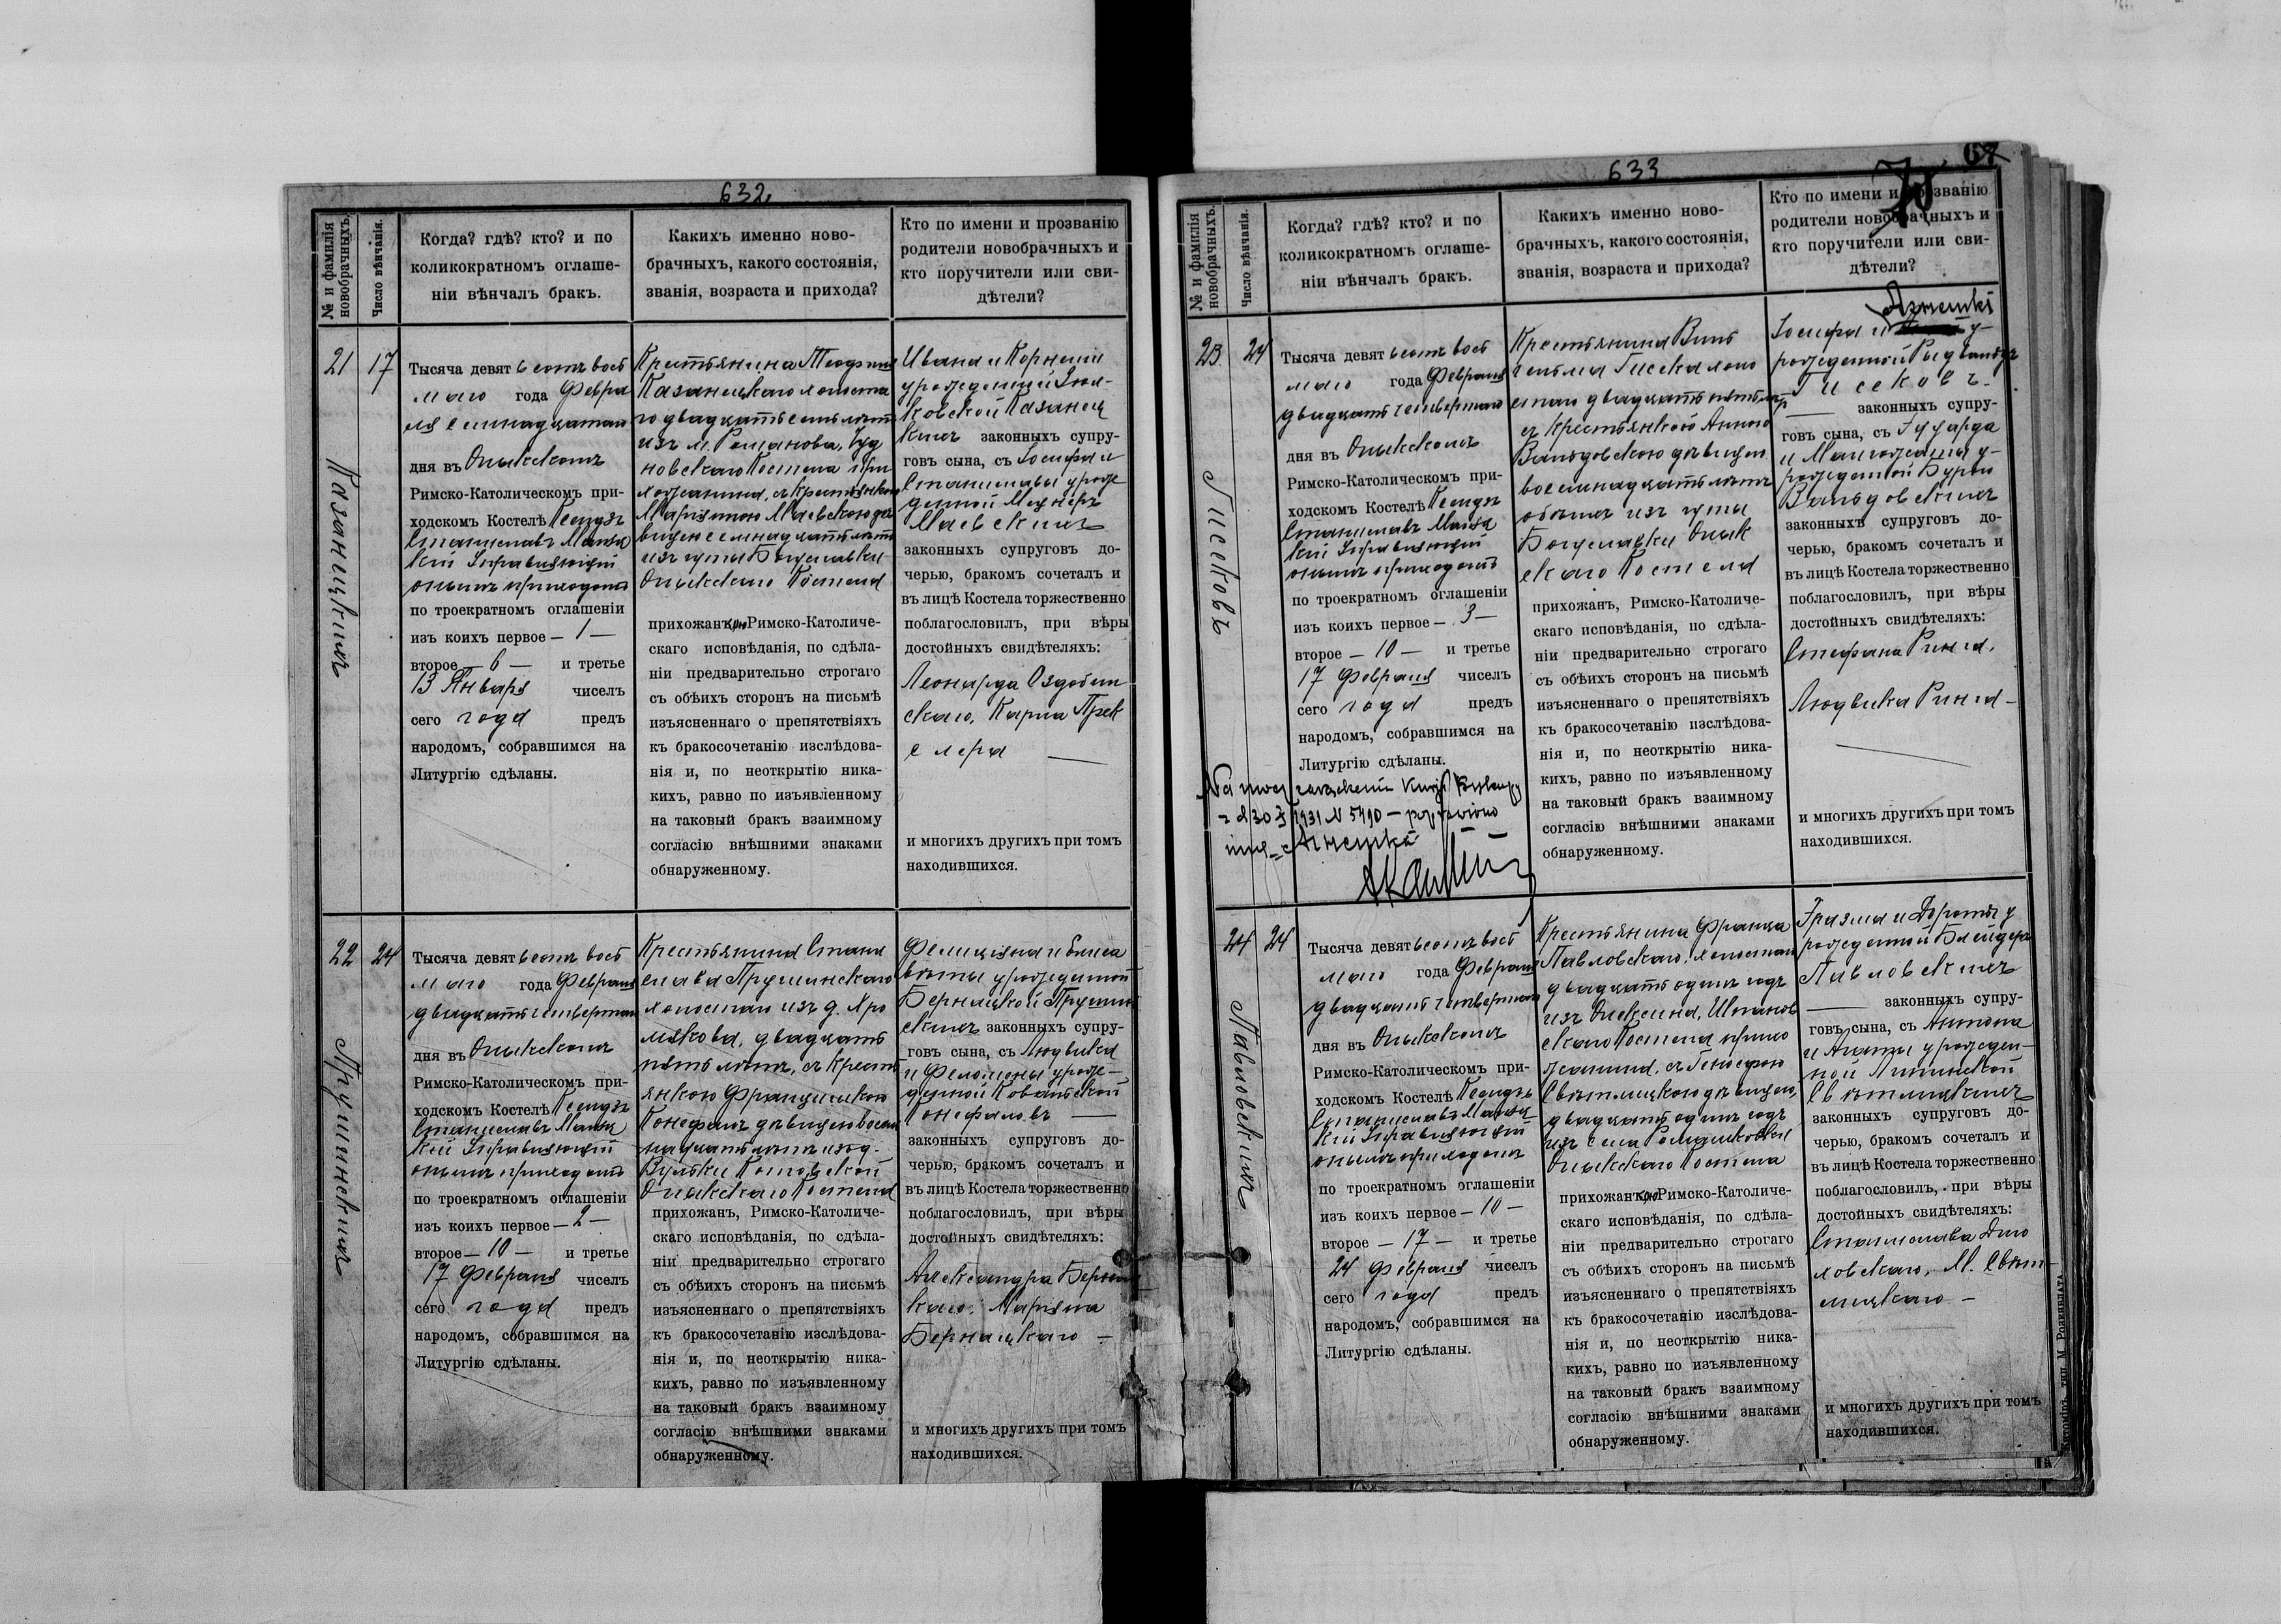 632
№ и фамилія новобрачныхъ.
Число вѣнчанія.
Когда? гдѣ? кто? и по
коликократномъ оглаше-
ніи вѣнчалъ бракъ.
Какихъ именно ново-
брачныхъ, какого состоянія,
званія, возраста и прихода?
Кто по имени и прозванію
родители новобрачныхъ и
кто поручители или сви-
дѣтели?
21
17
Казанецкихъ
Тысяча девятьсотъ вось
маго года Февра
ля семнадцатаго
дня въ Олыкскомъ
Римско-Католическомъ при-
ходскомъ Костелѣ Ксендзъ
Станиславъ
кій Управляющій
онымъ приходомъ
по троекратномъ оглашеніи
изъ коихъ первое — 1 —
второе — 6 — и третье
13 Января чиселъ
сего года предъ
народомъ, собравшимся на
Литургію сдѣланы.
Крестьянина Теофила
Казанецкаго холоста
го двадцати семи лѣтъ
изъ м. Романова,
новскаго Костела при
хожанина, съ крестьянкою
Маріянною Маевскою дѣ
вицею семнадцати лѣтъ
изъ гуты Богуславки
Олыкскаго Костела
прихожанъ, Римско-Католиче-
скаго исповѣданія, по сдѣла-
ніи предварительно строгаго
съ обѣихъ сторонъ на письмѣ
изъясненнаго о препятствіяхъ
къ бракосочетанію изслѣдова-
нія и, по неоткрытію ника-
кихъ, равно по изъявленному
на таковый бракъ взаимному
согласію внѣшними знаками
обнаруженному.
Ивана и Корнеліи
урожденной
ковской Казанец
кихъ законныхъ супру-
говъ сына, съ Іосифа и
Станиславы урож
денной
Маевскихъ
законныхъ супруговъ до-
черью, бракомъ сочеталъ и
въ лицѣ Костела торжественно
поблагословилъ, при вѣры
достойныхъ свидѣтеляхъ:
Леонарда Оздобин
скаго, Карла Прек
слера —
и многихъ другихъ при томъ
находившихся.
22
24
Прушинскихъ
Тысяча девятьсотъ вось
маго года Февраля
двадцать четвертаго
дня въ Олыкскомъ
Римско-Католическомъ при-
ходскомъ Костелѣ Ксендзъ
Станиславъ
кій Управляющій
онымъ приходомъ
по троекратномъ оглашеніи
изъ коихъ первое — 2 —
второе — 10 — и третье
17 Февраля чиселъ
сего года предъ
народомъ, собравшимся на
Литургію сдѣланы.
Крестьянина Стани
слава Прушинскаго
холостаго изъ д. Хро
мякова, двадцати
пяти лѣтъ, съ крест
янкою Францишкою
Конефалъ дѣвицею восем
надцати лѣтъ изъ д.
Вульки Котовской
Олыкскаго Костела
прихожанъ, Римско-Католиче-
скаго исповѣданія, по сдѣла-
ніи предварительно строгаго
съ обѣихъ сторонъ на письмѣ
изъясненнаго о препятствіяхъ
къ бракосочетанію изслѣдова-
нія и, по неоткрытію ника-
кихъ, равно по изъявленному
на таковый бракъ взаимному
согласію внѣшними знаками
обнаруженному.
Фелиціяна и Елиса
веты урожденной
Бернацкой Прушин
скихъ законныхъ супру-
говъ сына, съ Людвика
и Филомены урож-
денной Ковальской
Конефаловъ —
законныхъ супруговъ до-
черью, бракомъ сочеталъ и
въ лицѣ Костела торжественно
поблагословилъ, при вѣры
достойныхъ свидѣтеляхъ:
Александра Бернац
каго, Маріяна
Бернацкаго —
и многихъ другихъ при томъ
находившихся.
633
67
70
№ и фамилія новобрачныхъ.
Число вѣнчанія.
Когда? гдѣ? кто? и по
коликократномъ оглаше-
ніи вѣнчалъ бракъ.
Какихъ именно ново-
брачныхъ, какого состоянія,
званія, возраста и прихода?
Кто по имени и прозванію
родители новобрачныхъ и
кто поручители или сви-
дѣтели?
23
24
Гисековъ
Тысяча девятьсотъ вось
маго года Февраля
двадцать четвертаго
дня въ Олыкскомъ
Римско-Католическомъ при-
ходскомъ Костелѣ Ксендзъ
Станиславъ
кій Управляющій
онымъ приходомъ
по троекратномъ оглашеніи
изъ коихъ первое — 3 —
второе — 10 — и третье
17 Февраля чиселъ
сего года предъ
народомъ, собравшимся на
Литургію сдѣланы.
1931 N 5490
Крестьянина Виль
гельма Гисека холо
стаго двадцати пяти лѣтъ
съ крестьянкою Анною
Вальдовскою дѣвицею
восемнадцати лѣтъ
обоихъ изъ гуты
Богуславки Олык
скаго Костела
прихожанъ, Римско-Католиче-
скаго исповѣданія, по сдѣла-
ніи предварительно строгаго
съ обѣихъ сторонъ на письмѣ
изъясненнаго о препятствіяхъ
къ бракосочетанію изслѣдова-
нія и, по неоткрытію ника-
кихъ, равно по изъявленному
на таковый бракъ взаимному
согласію внѣшними знаками
обнаруженному.
Іосифа и у-
рожденной
Гисековъ —
законныхъ супру-
говъ сына, съ Эдуарда
и у-
рожденной
Вальдовскихъ
законныхъ супруговъ до-
черью, бракомъ сочеталъ и
въ лицѣ Костела торжественно
поблагословилъ, при вѣры
достойныхъ свидѣтеляхъ:
Стефана Ринга,
Людвика Ринга —
и многихъ другихъ при томъ
находившихся.
24
24
Павловскихъ
Тысяча девятьсотъ вось
маго года Февраля
двадцать четвертаго
дня въ Олыкскомъ
Римско-Католическомъ при-
ходскомъ Костелѣ Ксендзъ
Станиславъ
кій Управляющій
онымъ приходомъ
по троекратномъ оглашеніи
изъ коихъ первое — 10 —
второе — 17 — и третье
24 Февраля чиселъ
сего года предъ
народомъ, собравшимся на
Литургію сдѣланы.
Крестьянина Франца
Павловскаго, холостаго
двадцати одинъ годъ
изъ Олексина, Шпанов
скаго Костела прихо
жанина, съ Генофою
Свѣтлицкою дѣвицею,
двадцати одинъ годъ
изъ села Ромашковки
Олыкскаго Костела
прихожанъ, Римско-Католиче-
скаго исповѣданія, по сдѣла-
ніи предварительно строгаго
съ обѣихъ сторонъ на письмѣ
изъясненнаго о препятствіяхъ
къ бракосочетанію изслѣдова-
нія и, по неоткрытію ника-
кихъ, равно по изъявленному
на таковый бракъ взаимному
согласію внѣшними знаками
обнаруженному.
Эразма и Дороты у
рожденной
Павловскихъ
законныхъ супру-
говъ сына, съ Антона
и Агаты урожден-
ной Липинской
Свѣтлицкихъ
законныхъ супруговъ до-
черью, бракомъ сочеталъ и
въ лицѣ Костела торжественно
поблагословилъ, при вѣры
достойныхъ свидѣтеляхъ:
Станислава
ховскаго, М. Свѣт-
лицкаго —
и многихъ другихъ при томъ
находившихся.
Житоміръ, тип. М. Розенблата